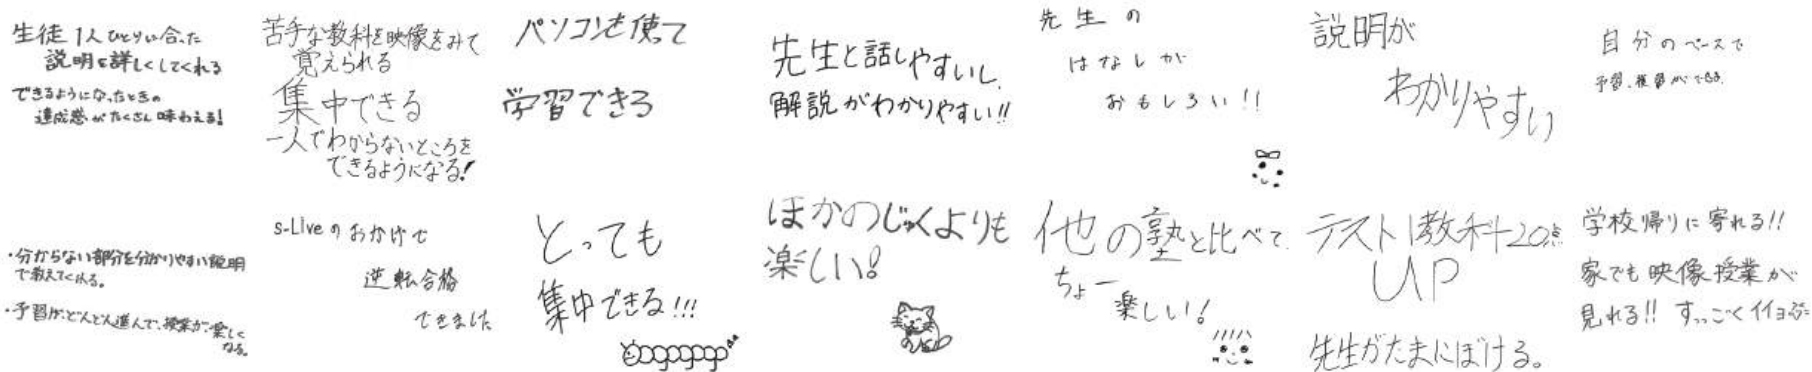 生徒1人ひとりい合った
説明を詳しくしてくれる
できるようになったときの
達成感がたくさん味わえる!
苦手な教科を映像をみて
覚えられる
集中できる
一人でわからないところを
できるようになる!
パソコンを使って
学習できる
先生と話しやすいし、
解説がわかりやすい!!
先生の
はなしが
おもしろい!!
説明が
わかりやすい
自分のペースで
予習、復習ができる。
・分からない部分を分かりやすい説明
で教えてくれる。
・予習がどんどん進んで、授業が楽しく
なる。
s-Liveのおかげで
逆転合格
できました
とっても
集中できる!!!
ほかのじゅくよりも
楽しい!
他の塾と比べて
ちょー
楽しい!
テスト1教科20点
UP
先生がたまにぼける。
学校帰りに寄れる!!
家でも映像授業が
見れる!! すっごくイイ